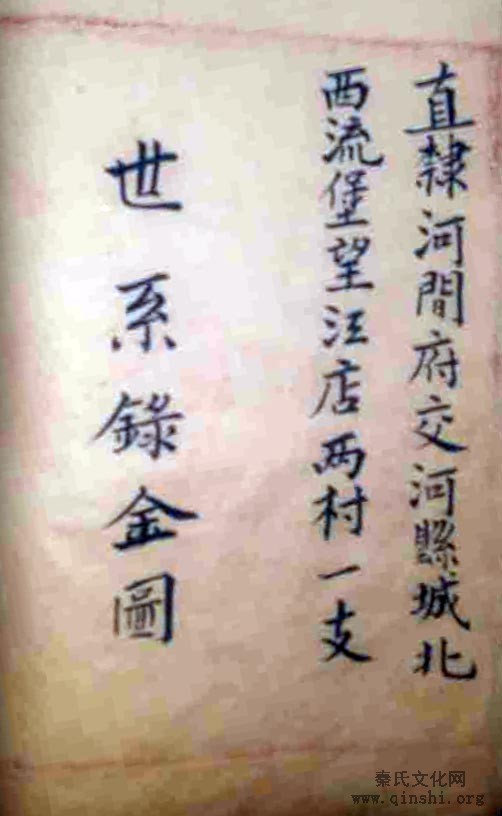 直隸河間府交河縣城北
西流堡望汪店两村一支
世系錄金圖
秦氏文化网
www.qinshi.org